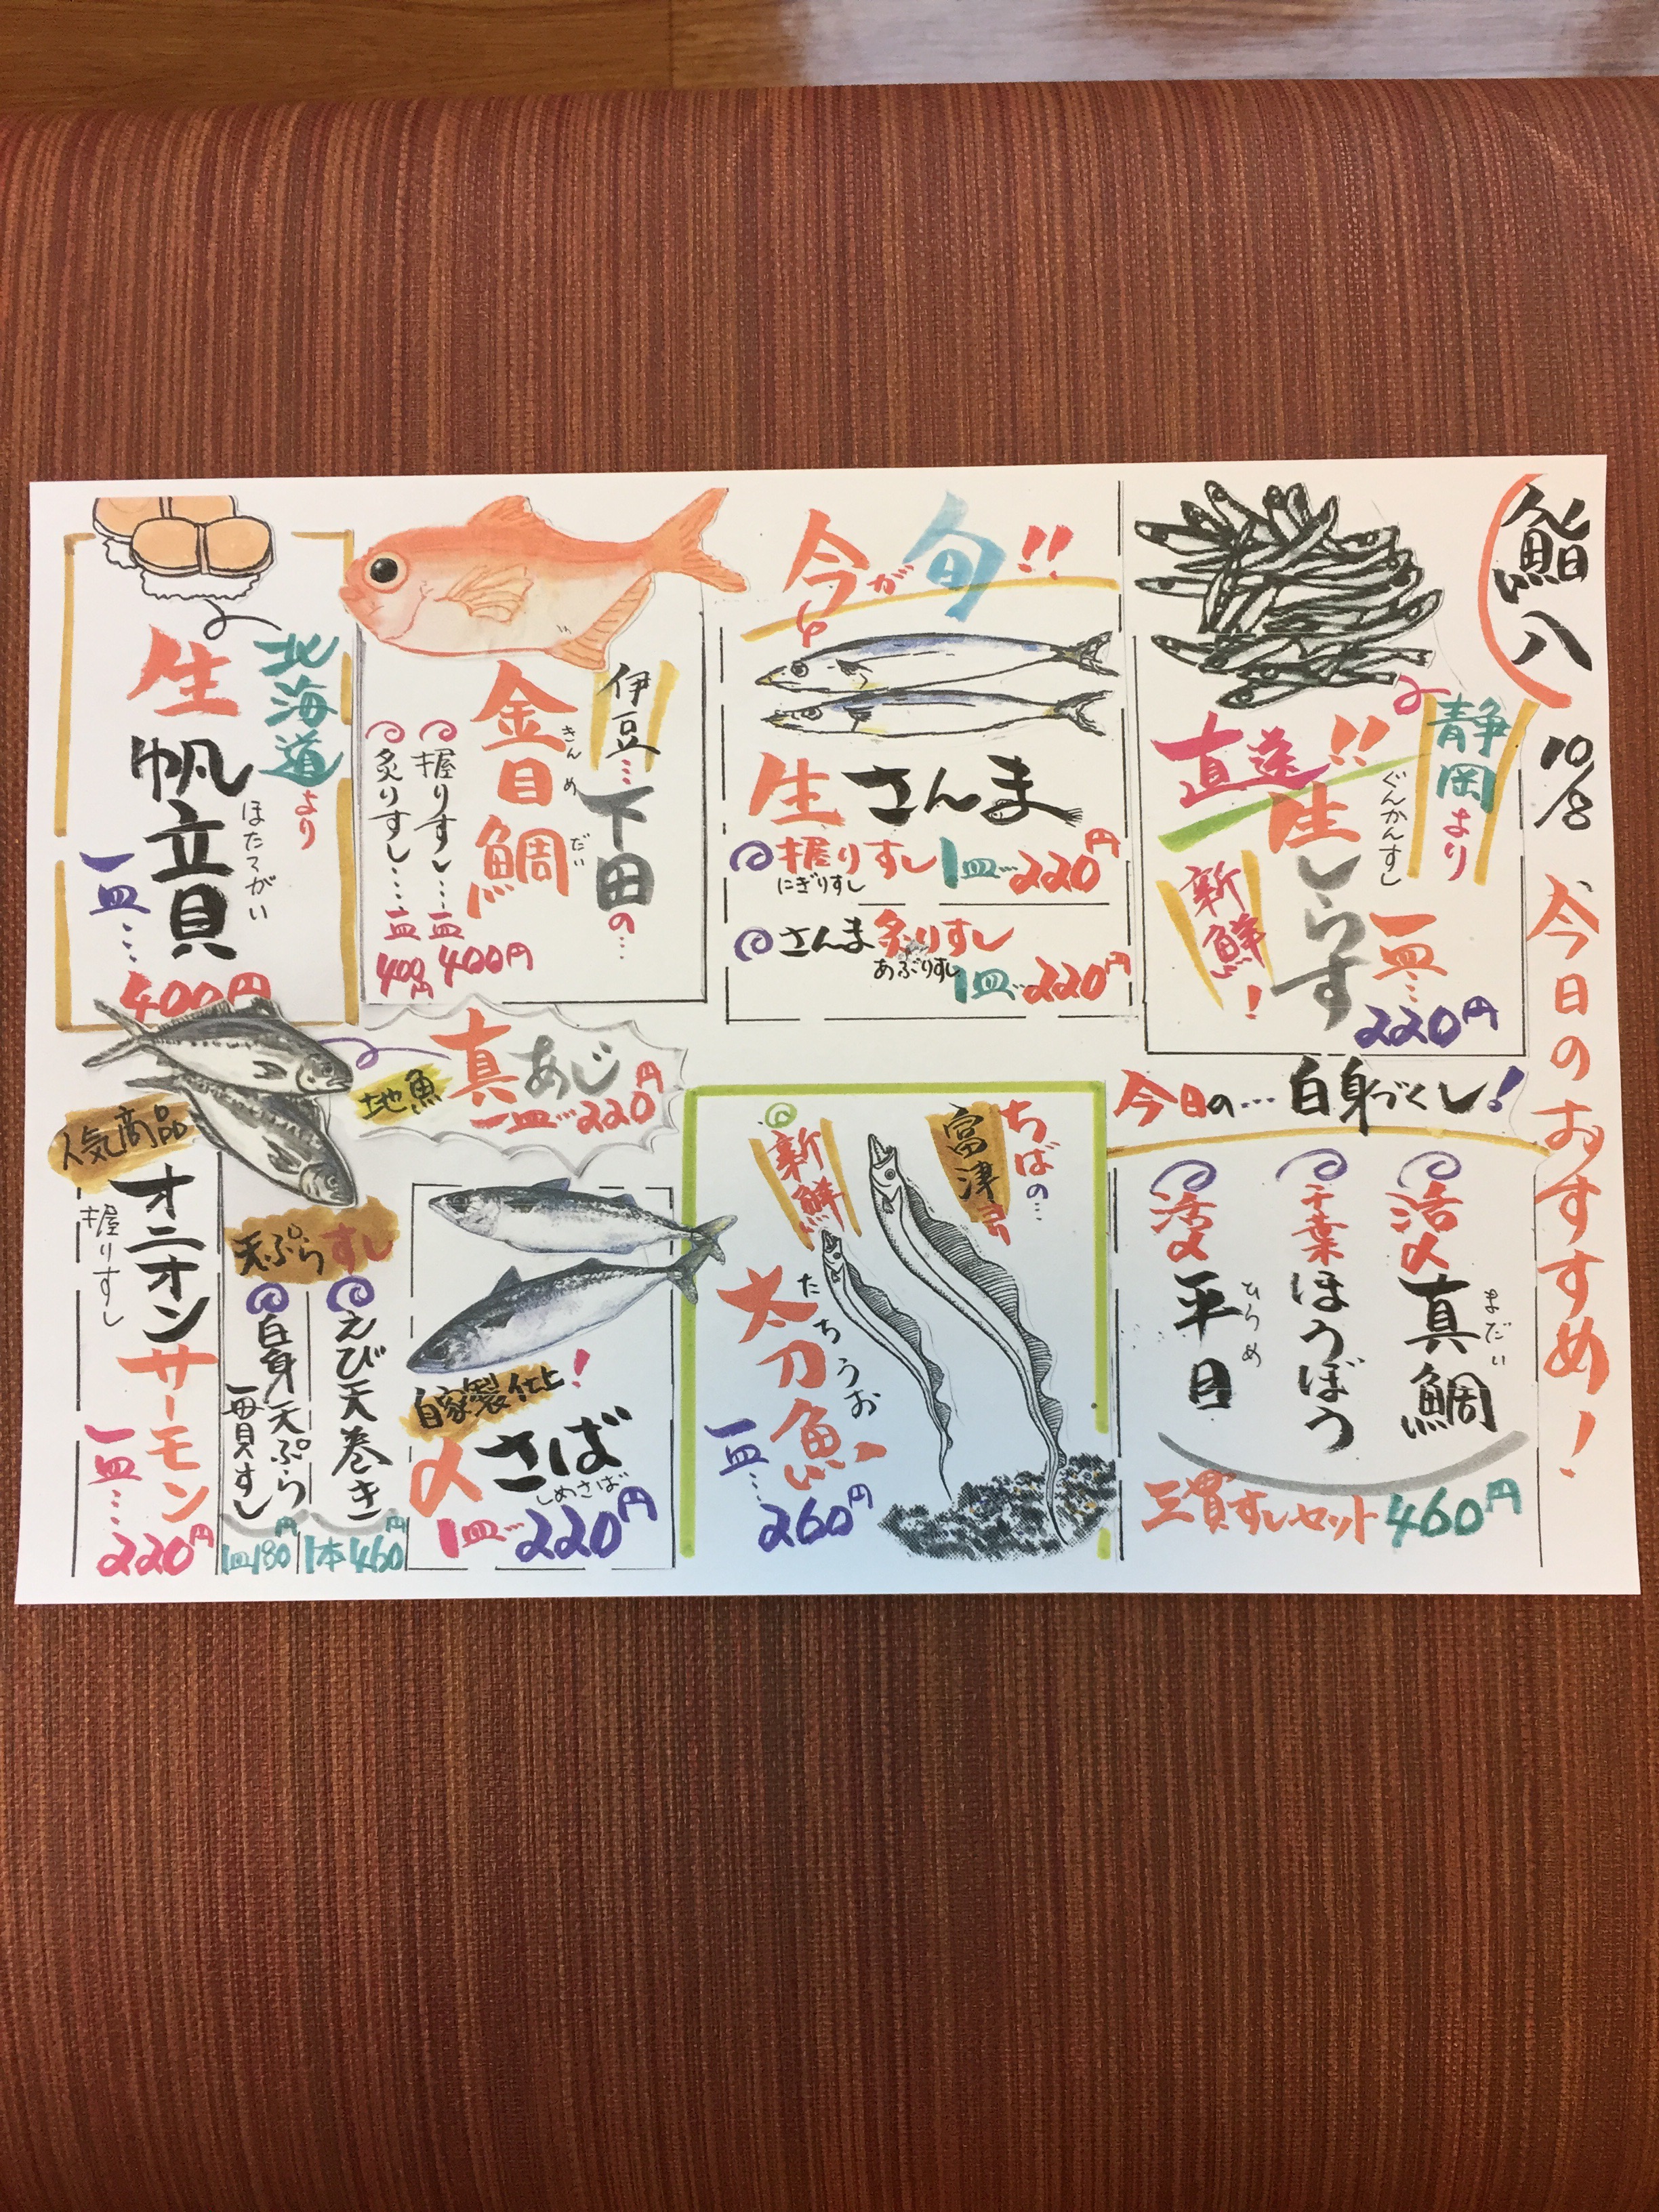 鮨八
10/8
今日のおすすめ!
静岡より
直送!!
生しらす
ぐんかんすし
新鮮!
一皿…
220円
今が旬!!
生さんま
握りすし 1皿…220円
にぎりすし
さんま炙りすし
あぶりすし
1皿…220円
伊豆…下田の…
金目鯛
きんめだい
握りすし…一皿400円
炙りすし…一皿400円
北海道より
生帆立貝
ほたてがい
一皿…
400円
地魚
真あじ
一皿…220円
今日の…白身づくし!
活〆真鯛
まだい
千葉ほうぼう
活〆平目
ひらめ
三貫すしセット460円
ちばの…
富津産
新鮮
太刀魚
たちうお
一皿…
260円
自家製仕上!
〆さば
しめさば
1皿…220円
天ぷらすし
えび天巻き
1本460円
白身天ぷら
一貫すし
1皿180円
人気商品
オニオンサーモン
握りすし
一皿…
220円